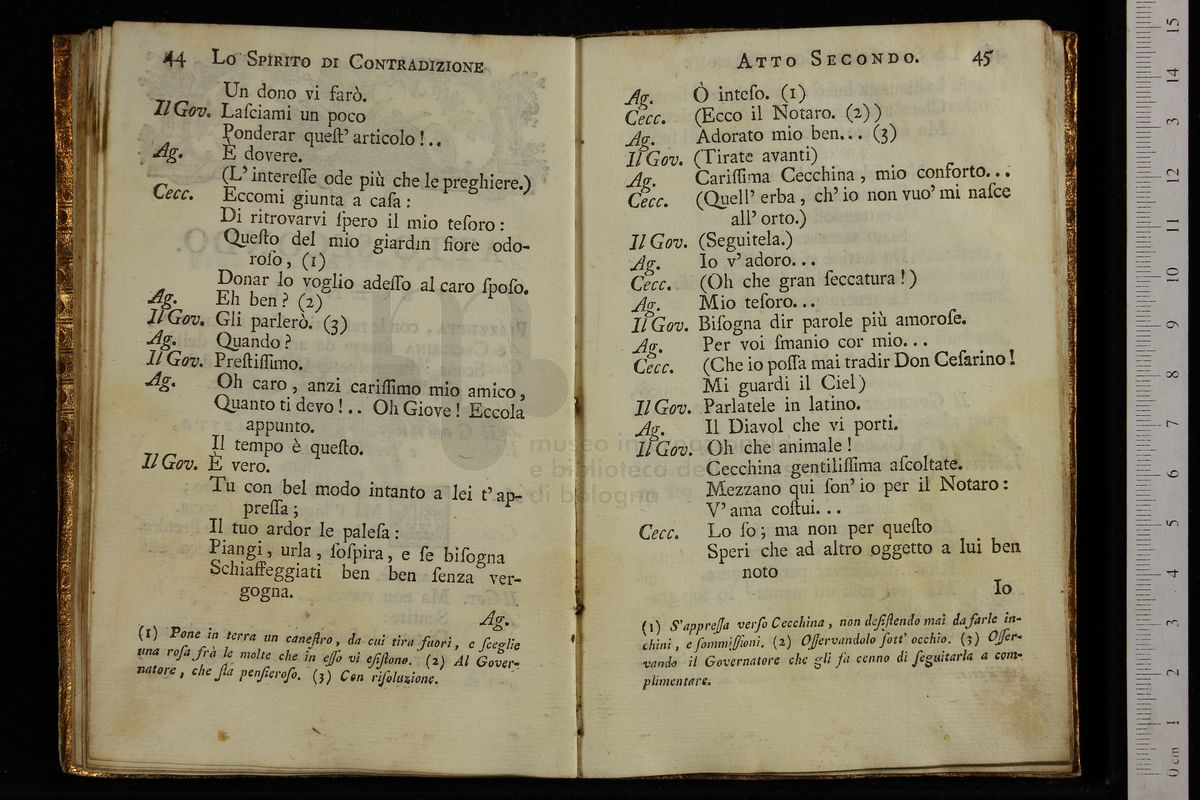 44 Lo Spirito di Contradizione
Un dono vi farò.
Il Gov. Laſciami un poco
Ponderar queſt' articolo !..
Ag. È dovere.
(L' intereſſe ode più che le preghiere.)
Cecc. Eccomi giunta a caſa :
Di ritrovarvi ſpero il mio teſoro :
Queſto del mio giardin fiore odo-
roſo, (1)
Donar lo voglio adeſſo al caro ſpoſo.
Ag. Eh ben ? (2)
Il Gov. Gli parlerò. (3)
Ag. Quando ?
Il Gov. Preſtiſſimo.
Ag. Oh caro , anzi cariſſimo mio amico ,
Quanto ti devo !.. Oh Giove ! Eccola
appunto.
Il tempo è queſto.
Il Gov. È vero.
Tu con bel modo intanto a lei t' ap-
preſſa ;
Il tuo ardor le paleſa :
Piangi , urla , ſoſpira , e ſe biſogna
Schiaffeggiati ben ben ſenza ver-
gogna.
Ag.
(1) Pone in terra un caneſtro, da cui tira fuori, e ſceglie
una roſa frà le molte che in eſſo vi eſiſtono. (2) Al Gover-
natore, che ſta penſieroſo. (3) Con riſoluzione.
Atto Secondo. 45
Ag. Ò inteſo. (1)
Cecc. (Ecco il Notaro. (2) )
Ag. Adorato mio ben... (3)
Il Gov. (Tirate avanti)
Ag. Cariſſima Cecchina , mio conforto...
Cecc. (Quell' erba , ch' io non vuo' mi naſce
all' orto.)
Il Gov. (Seguitela.)
Ag. Io v' adoro...
Cecc. (Oh che gran ſeccatura !)
Ag. Mio teſoro...
Il Gov. Biſogna dir parole più amoroſe.
Ag. Per voi ſmanio cor mio...
Cecc. (Che io poſſa mai tradir Don Ceſarino !
Mi guardi il Ciel)
Il Gov. Parlatele in latino.
Ag. Il Diavol che vi porti.
Il Gov. Oh che animale !
Cecchina gentiliſſima aſcoltate.
Mezzano qui ſon' io per il Notaro :
V' ama coſtui...
Cecc. Lo ſo ; ma non per queſto
Speri che ad altro oggetto a lui ben
noto
Io
(1) S'appreſſa verſo Cecchina , non deſiſtendo mai da farle in-
chini, e ſommiſſioni. (2) Oſſervandolo ſott' occhio. (3) Oſſer-
vando il Governatore che gli fa cenno di ſeguitarla a com-
plimentare.
museo in
e biblioteca de
di bologna
0 cm 1 2 3 4 5 6 7 8 9 10 11 12 13 14 15